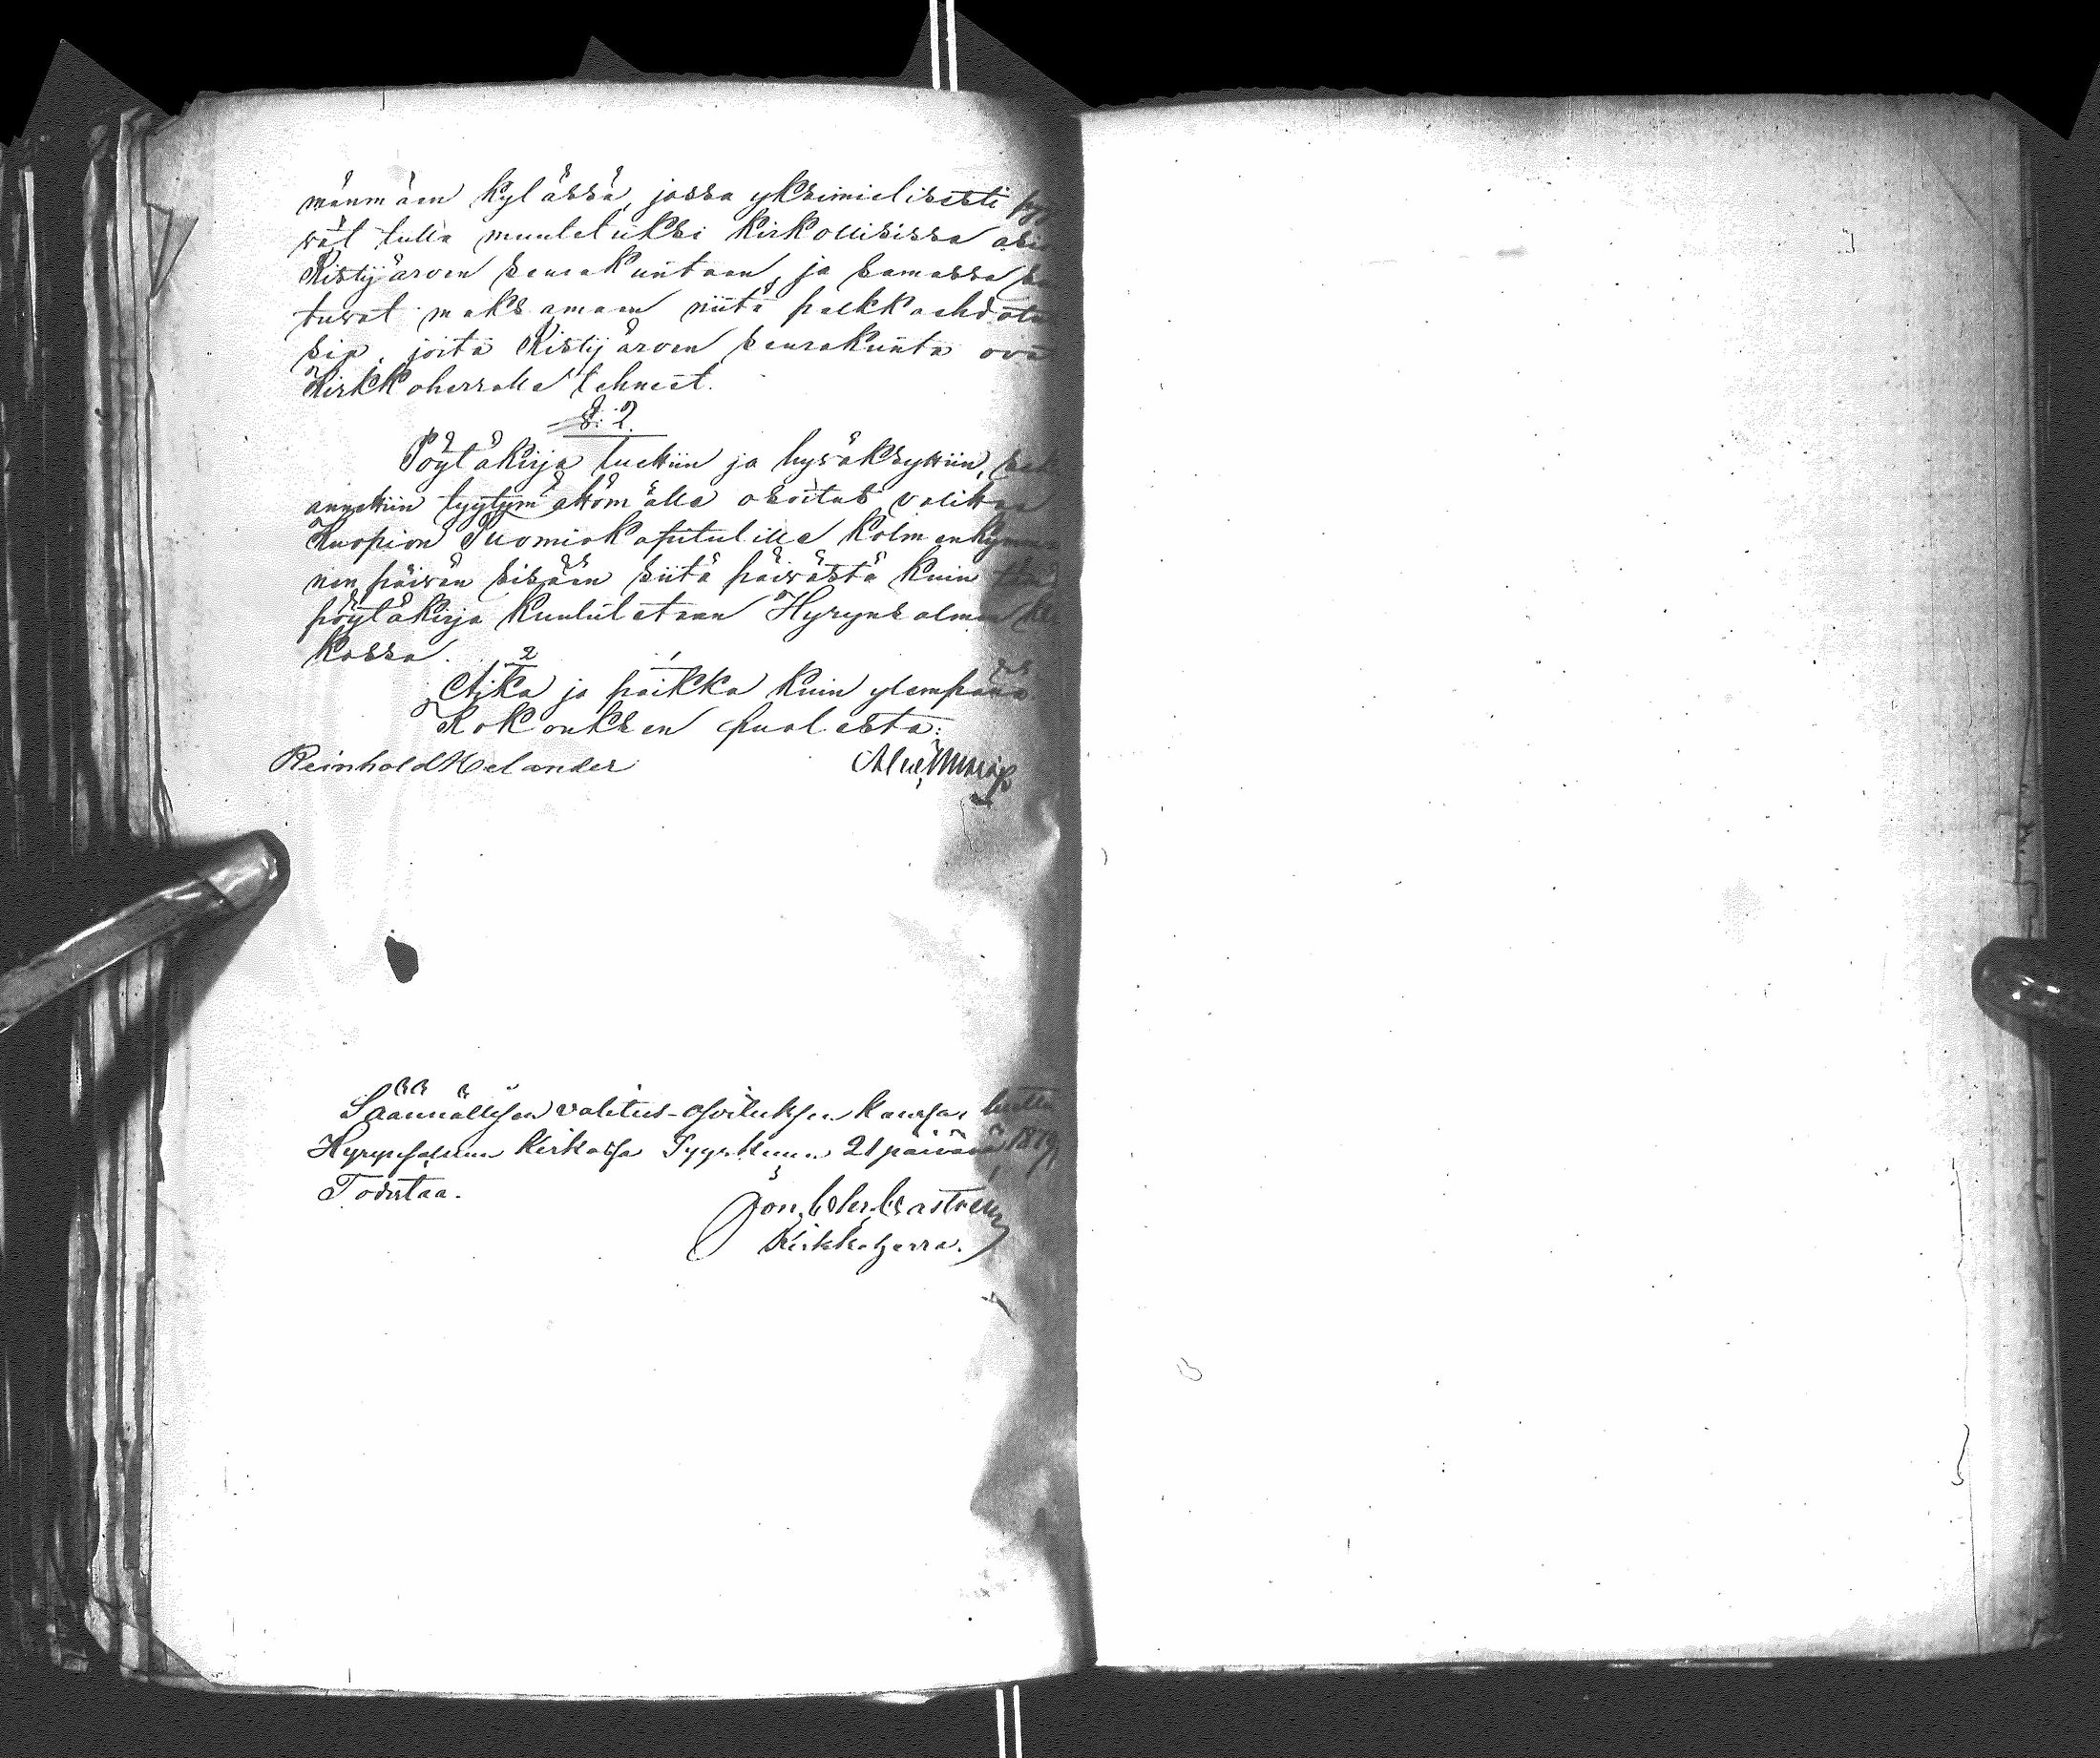 mänmäen kylässä, jossa yksimielisesti
wät tulla muutetuksi kirkollisissa
Ristijärven seurakuntaan, ja samassa
tuwat maksamaan niitä palkkaehdotuk
sia, joita Ristijärven seurakunta ova
Kirkkoherralle tehneet.
§: 2.
Pöytäkirja luettiin ja hywäksyttiin, sek
annettiin tyytymättömälle osoitus valittaa
Kuopion Tuomiokapitulille kolmenkymme
nen päiwän sisään siitä päiwästä kuin
pöytäkirja kuulutetaan Hyrynsalmen kir
kossa.
Aika ja paikka kuin ylempänä.
Kokouksen puolesta:
Reinhold Helander
Säännöllisen valitus-osoituksen kanssa luettu
Hyrynsalmen kirkossa Syyskuun 21 päivänä 1879,
Todistaa.
Jon. Chr. Castrén
Kirkkoherra.